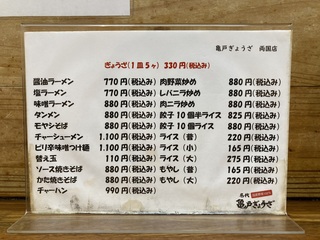 亀戸ぎょうざ 両国店
ぎょうざ(1皿5ヶ) 330円(税込み)
醤油ラーメン 770円(税込み) 肉野菜炒め 880円(税込み)
塩ラーメン 770円(税込み) レバニラ炒め 880円(税込み)
味噌ラーメン 880円(税込み) 肉ニラ炒め 880円(税込み)
タンメン 880円(税込み) 餃子10個半ライス 825円(税込み)
モヤシそば 880円(税込み) 餃子10個ライス 880円(税込み)
チャーシューメン 1,100円(税込み) ライス(普) 220円(税込み)
ピリ辛味噌つけ麺 1,100円(税込み) ライス(小) 165円(税込み)
替え玉 110円(税込み) ライス(大) 275円(税込み)
ソース焼きそば 880円(税込み) もやし(普) 165円(税込み)
かた焼きそば 880円(税込み) もやし(大) 220円(税込み)
チャーハン 990円(税込み)
名代
亀戸ぎょうざ